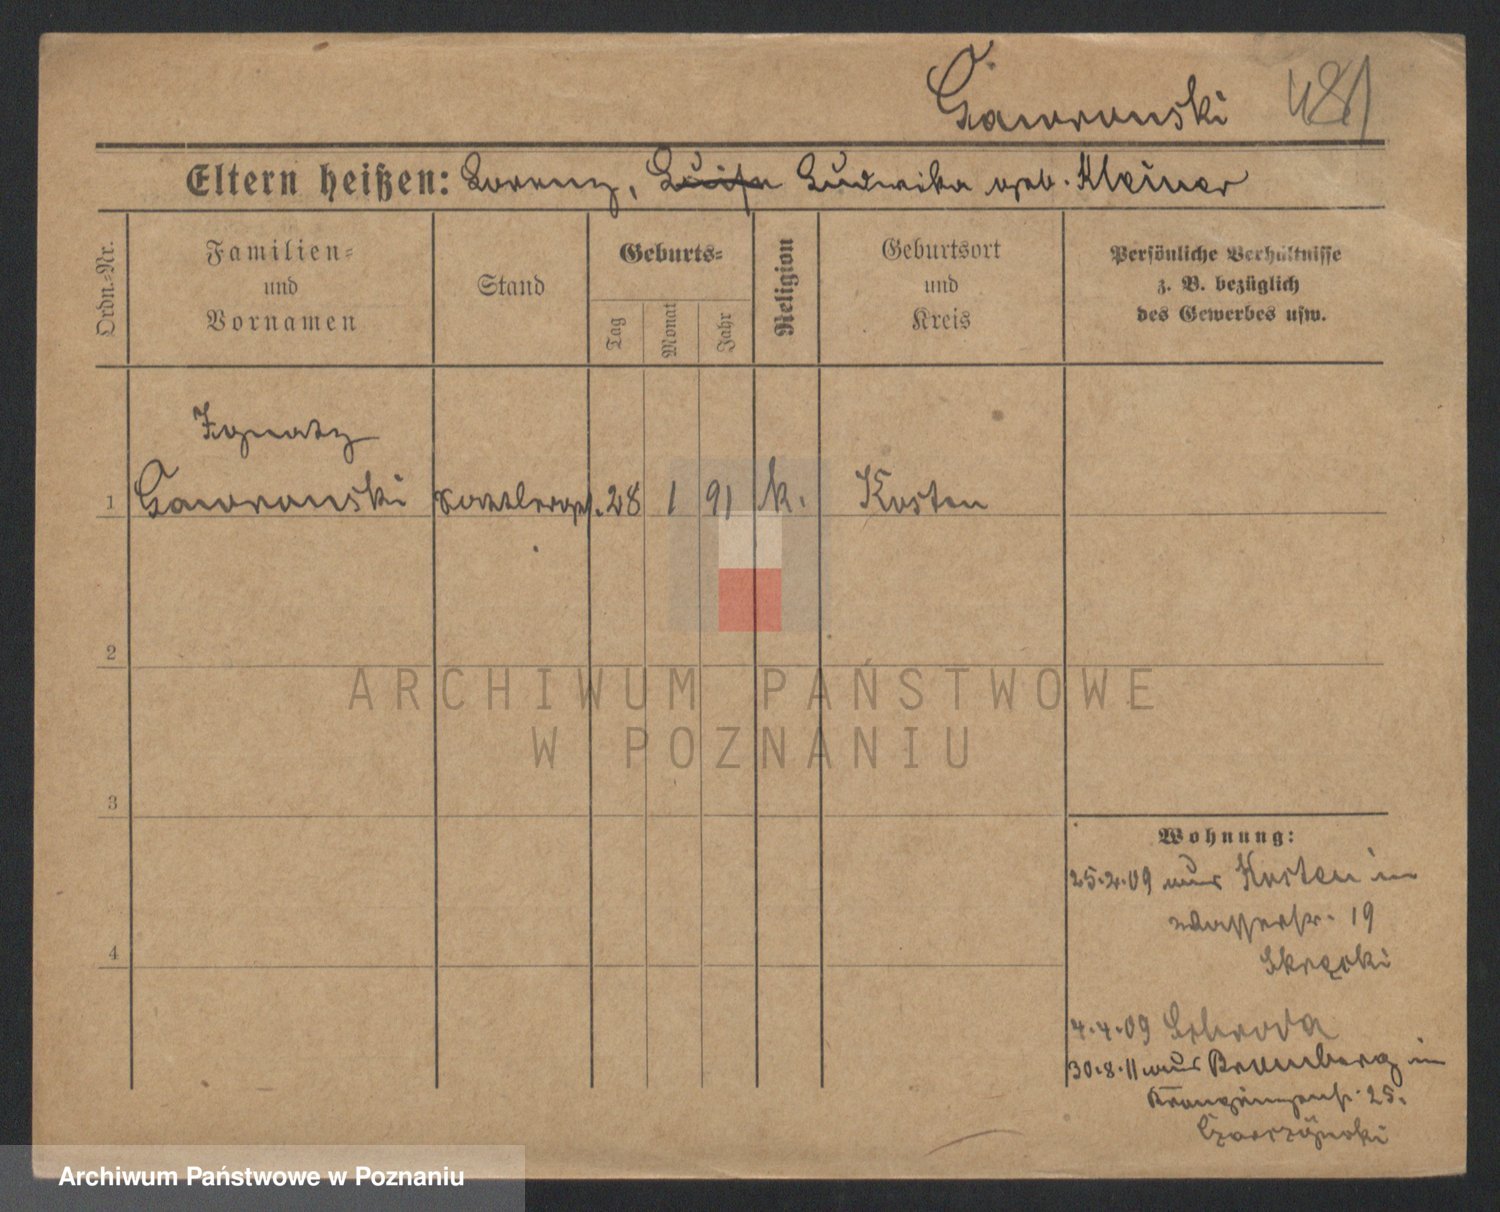 Gaworonski 481
Eltern heißen: Lorenz, Luise Ludwika geb. Kleiner
Ordn.-Nr.
Familien-
und
Vornamen
Stand
Geburts-
Tag
Monat
Jahr
Religion
Geburtsort
und
Kreis
Persönliche Verhältnisse
z. B. bezüglich
des Gewerbes usw.
Ignatz
1 Gaworonski 28 1 91 k. Kosten
2
3
4
ARCHIWUM PAŃSTWOWE
W POZNANIU
Wohnung:
25.2.09 aus Kosten in
Wasserstr. 19
Skrzycki
4.4.09 Schroda
30.8.11 aus Bromberg in
25.
Archiwum Państwowe w Poznaniu